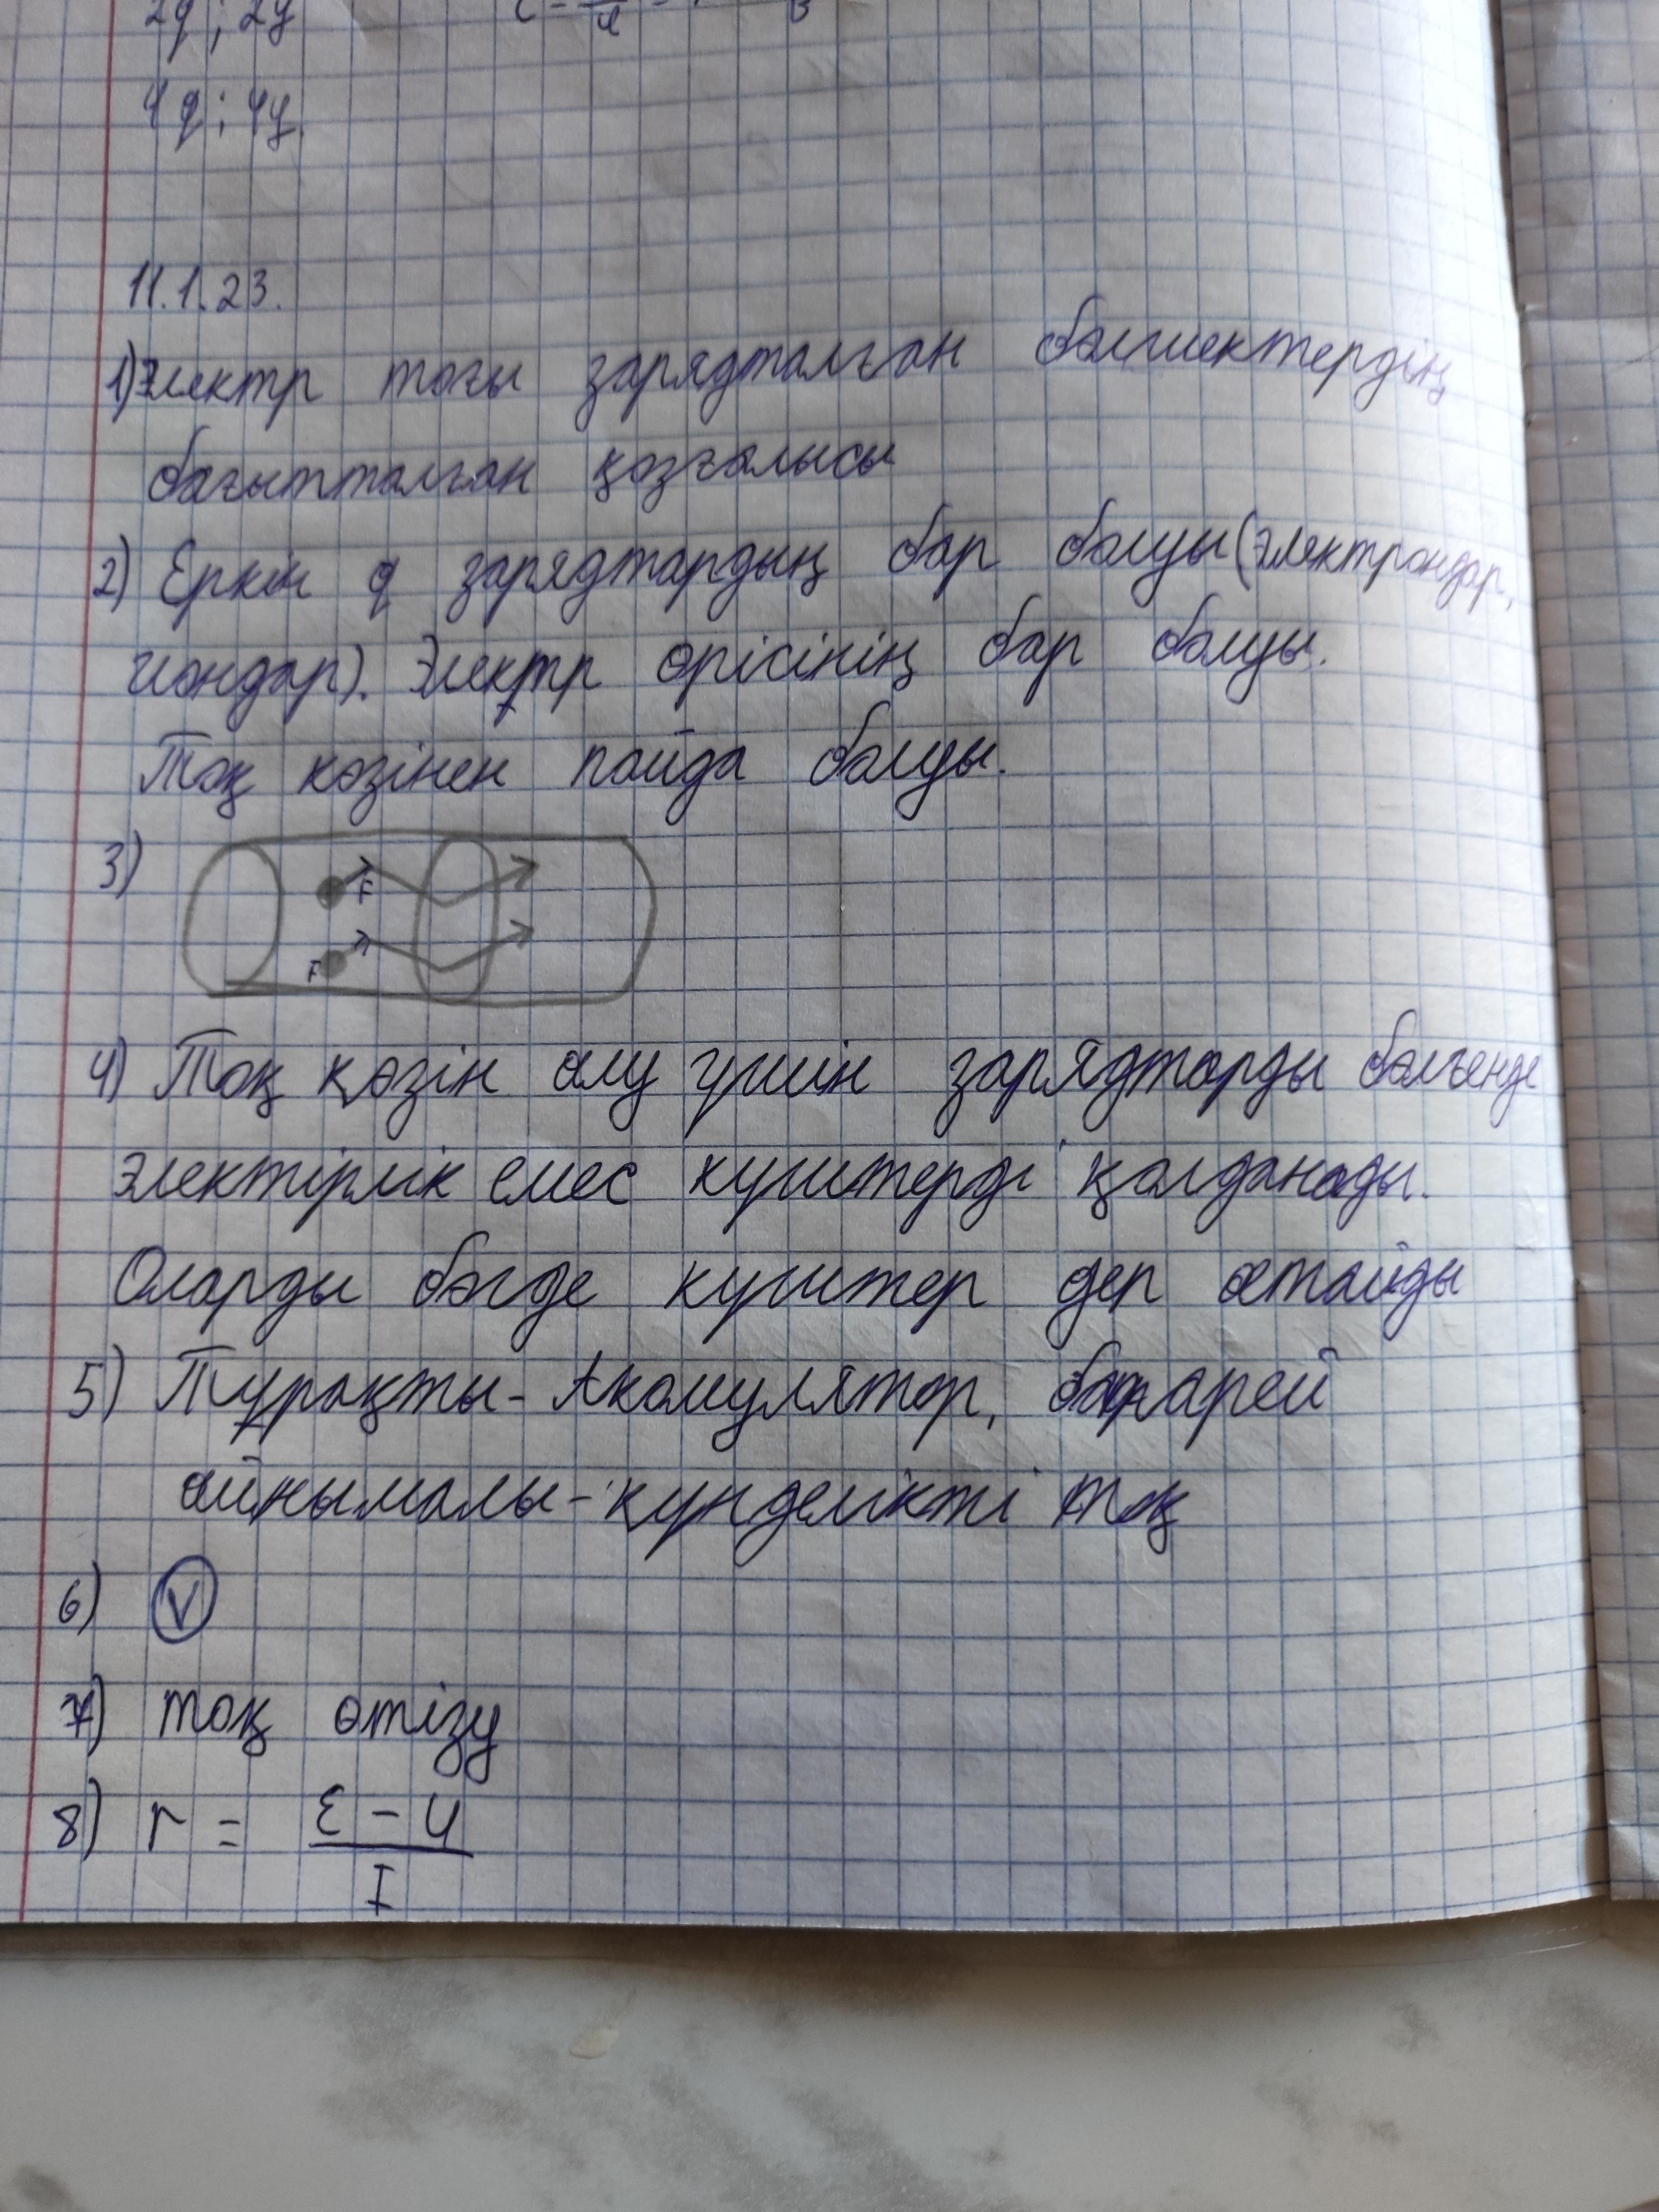 2q ; 2y
4q ; 4y.
11.1.23.
1) Электр тогы зарядталған бөлшектердің
бағытталған қозғалысы
2) Еркін q зарядтардың бар болуы (электрондар,
иондар). Электр өрісінің бар болуы.
Тоқ көзінен пайда болды.
3)
F
F
4) Тоқ қөзін алу үшін зарядтарды бөлгенде
электірлік емес күштерді қолданады.
Оларды бөгде күштер деп атайды
5) Тұрақты - Акомулятор, батарей
айнымалы - күнделікті тоқ
6) V
7) тоқ өтізу
8) r = ε - U
I